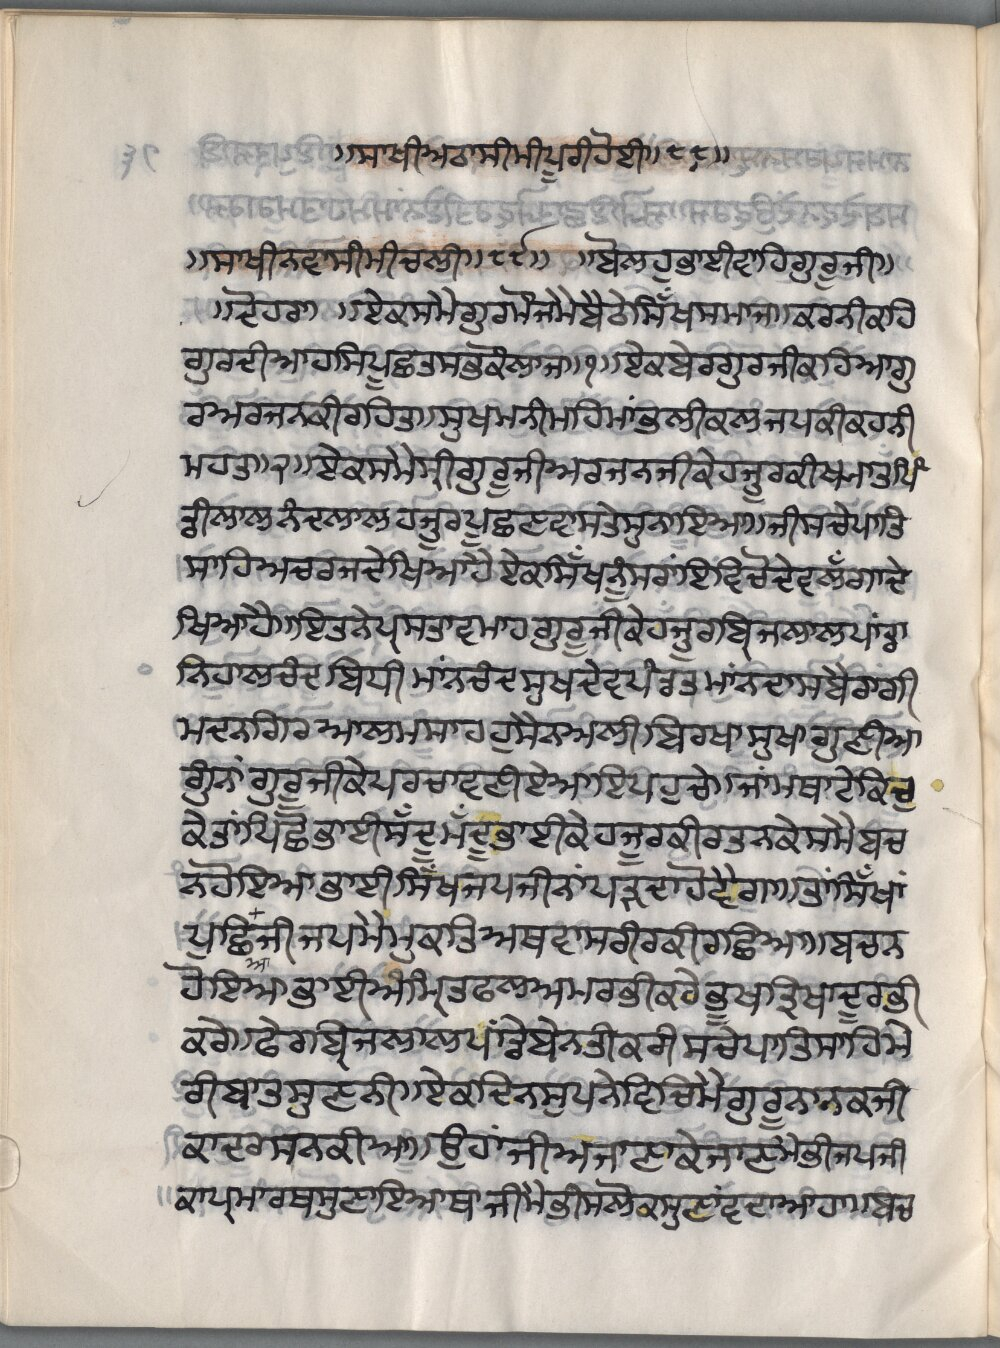 ॥ਸਾਖੀਅਠਾਸੀਮੀਪੂਰੀਹੋਈ॥੮੮॥
॥ਸਾਖੀਨਵਾਸੀਮੀਚਲੀ॥੮੯॥ ॥ਬੋਲਹੁਭਾਈਵਾਹਿਗੁਰੂਜੀ॥
॥ਦੋਹਰਾ॥ ॥ਏਕਸਮੈਗੁਰਮੌਜਮੈਬੈਠੇਸਿੱਖਸਮਾਜ॥ਕਰਨੀਕਹਿ
ਗੁਰਦੀਆਹਸਿਪੂਛਤਸਭਕੌਲਾਜ॥੧॥ਏਕਬੇਰਗੁਰਜੀਕਹਿਆਗੁ
ਰਅਰਜਨਕੀਰਹਿਤ॥ਸੁਖਮਨੀਮਹਿਮਾਂਭਲੀਕਲਜਪਕੀਕਹਨੀ
ਮਹਤ॥੨॥ਏਕਸਮੇਮੈਸ੍ਰੀਗੁਰੂਜੀਅਰਜਨਜੀਕੇਹਜੂਰਕੀਬਾਤਪਿੰ
ਡੀਲਾਲਨੰਦਲਾਲਹਜੂਰਪੂਛਣਵਾਸਤੇਸੁਨਾਇਆ॥ਜੀਸਚੇਪਾਤਿ
ਸਾਹਿਅਚਰਜਦੇਖਿਆਹੈਏਕਸਿੱਖਨੂੰਸਰਾਂਇਵਿਚੋਦੇਵਲੱਗਾਦੇ
ਖਿਆਹੈ॥ਇਤਨੇਪ੍ਰਸਤਾਵਮਾਹਗੁਰੂਜੀਕੇਹਜੂਰਬ੍ਰਿਜਲਾਲਪਾਂਡਾ
ਨਿਹਾਲਚੰਦਬਿਧੀਮਾਂਨਚੰਦਸੁਖਦੇਵਪੰਡਤਮਾਂਨਦਾਸਬੈਰਾਗੀ
ਮਦਨਗਿਰਆਲਮਸਾਹਹੁਸੈਨਅਲੀਬਿਰਖਾਸੁਖਾਗੁਣੀਆ
ਗੁਨਾਂਗੁਰੂਜੀਕੇਪਰਚਾਵਣੀਏਆਇਪਹੁਚੇ॥ਜਾਂਮਥਾਟੇਕਿਚੁ
ਕੇਤਾਂਪਿਛੈਭਾਈਸੱਦੂਮੱਦੂਭਾਈਕੇਹਜੂਰਕੀਰਤਨਕੇਸਮੈਬਚ
ਨਹੋਇਆਭਾਈਸਿੱਖਜਪਜੀਨਾਂਪੜ੍ਹਦਾਹੋਵੈਗਾ॥ਤਾਂਸਿੱਖਾਂ
ਪੁਛਿਆਜੀਜਪਮੈਮੁਕਤਿਅਥਵਾਸਰੀਰਕੀਰਛਿਆ॥ਬਚਨ
ਹੋਇਆਭਾਈਅੰਮ੍ਰਿਤਫਲਅਮਰਭੀਕਰੇਭੂਖਤ੍ਰਿਖਾਦੂਰਭੀ
ਕਰੇ॥ਫੇਰਬ੍ਰਿਜਲਾਲਪਾਂਡੇਬੇਨਤੀਕਰੀਸਚੇਪਾਤਿਸਾਹਿਮੇ
ਰੀਬਾਤਸੁਣਨੀ॥ਏਕਦਿਨਸੁਪਨੇਵਿਚਿਮੈਗੁਰੂਨਾਨਕਜੀ
ਕਾਦਰਸਨਕੀਆ॥ਉਹਾਂਜੀਅਜਾਣਕੇਜਾਣਮੇਭੀਜਪਜੀ
ਕਾਪ੍ਰਮਾਰਥਸੁਣਾਇਆਥਾਜੀਮੈਭੀਸਲੋਕਸੁਣਾਂਵਦਾਆਹਾ॥ਬਚ